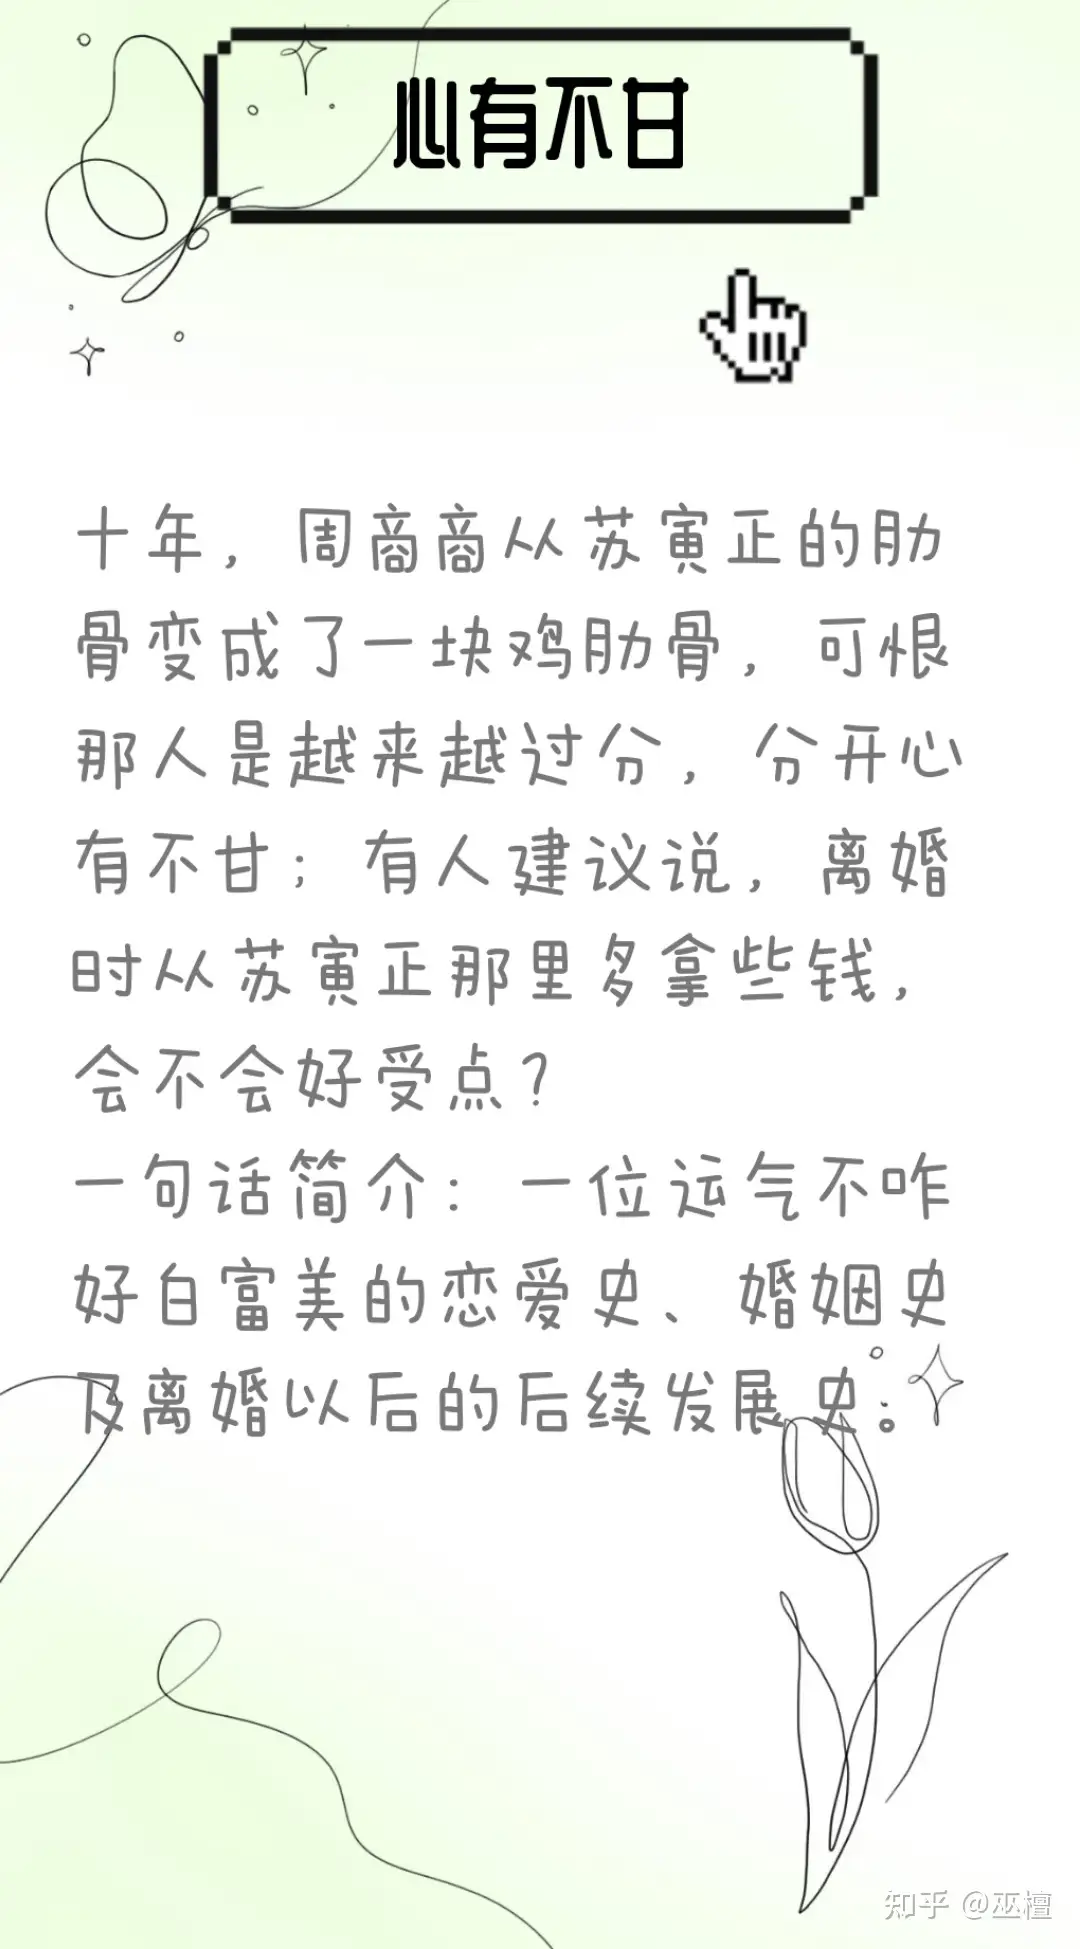 心有不甘
十年，周商商从苏寅正的肋
骨变成了一块鸡肋骨，可恨
那人是越来越过分，分开心
有不甘；有人建议说，离婚
时从苏寅正那里多拿些钱，
会不会好受点？
一句话简介：一位运气不咋
好白富美的恋爱史、婚姻史
及离婚以后的后续发展史。
知乎 @巫檀